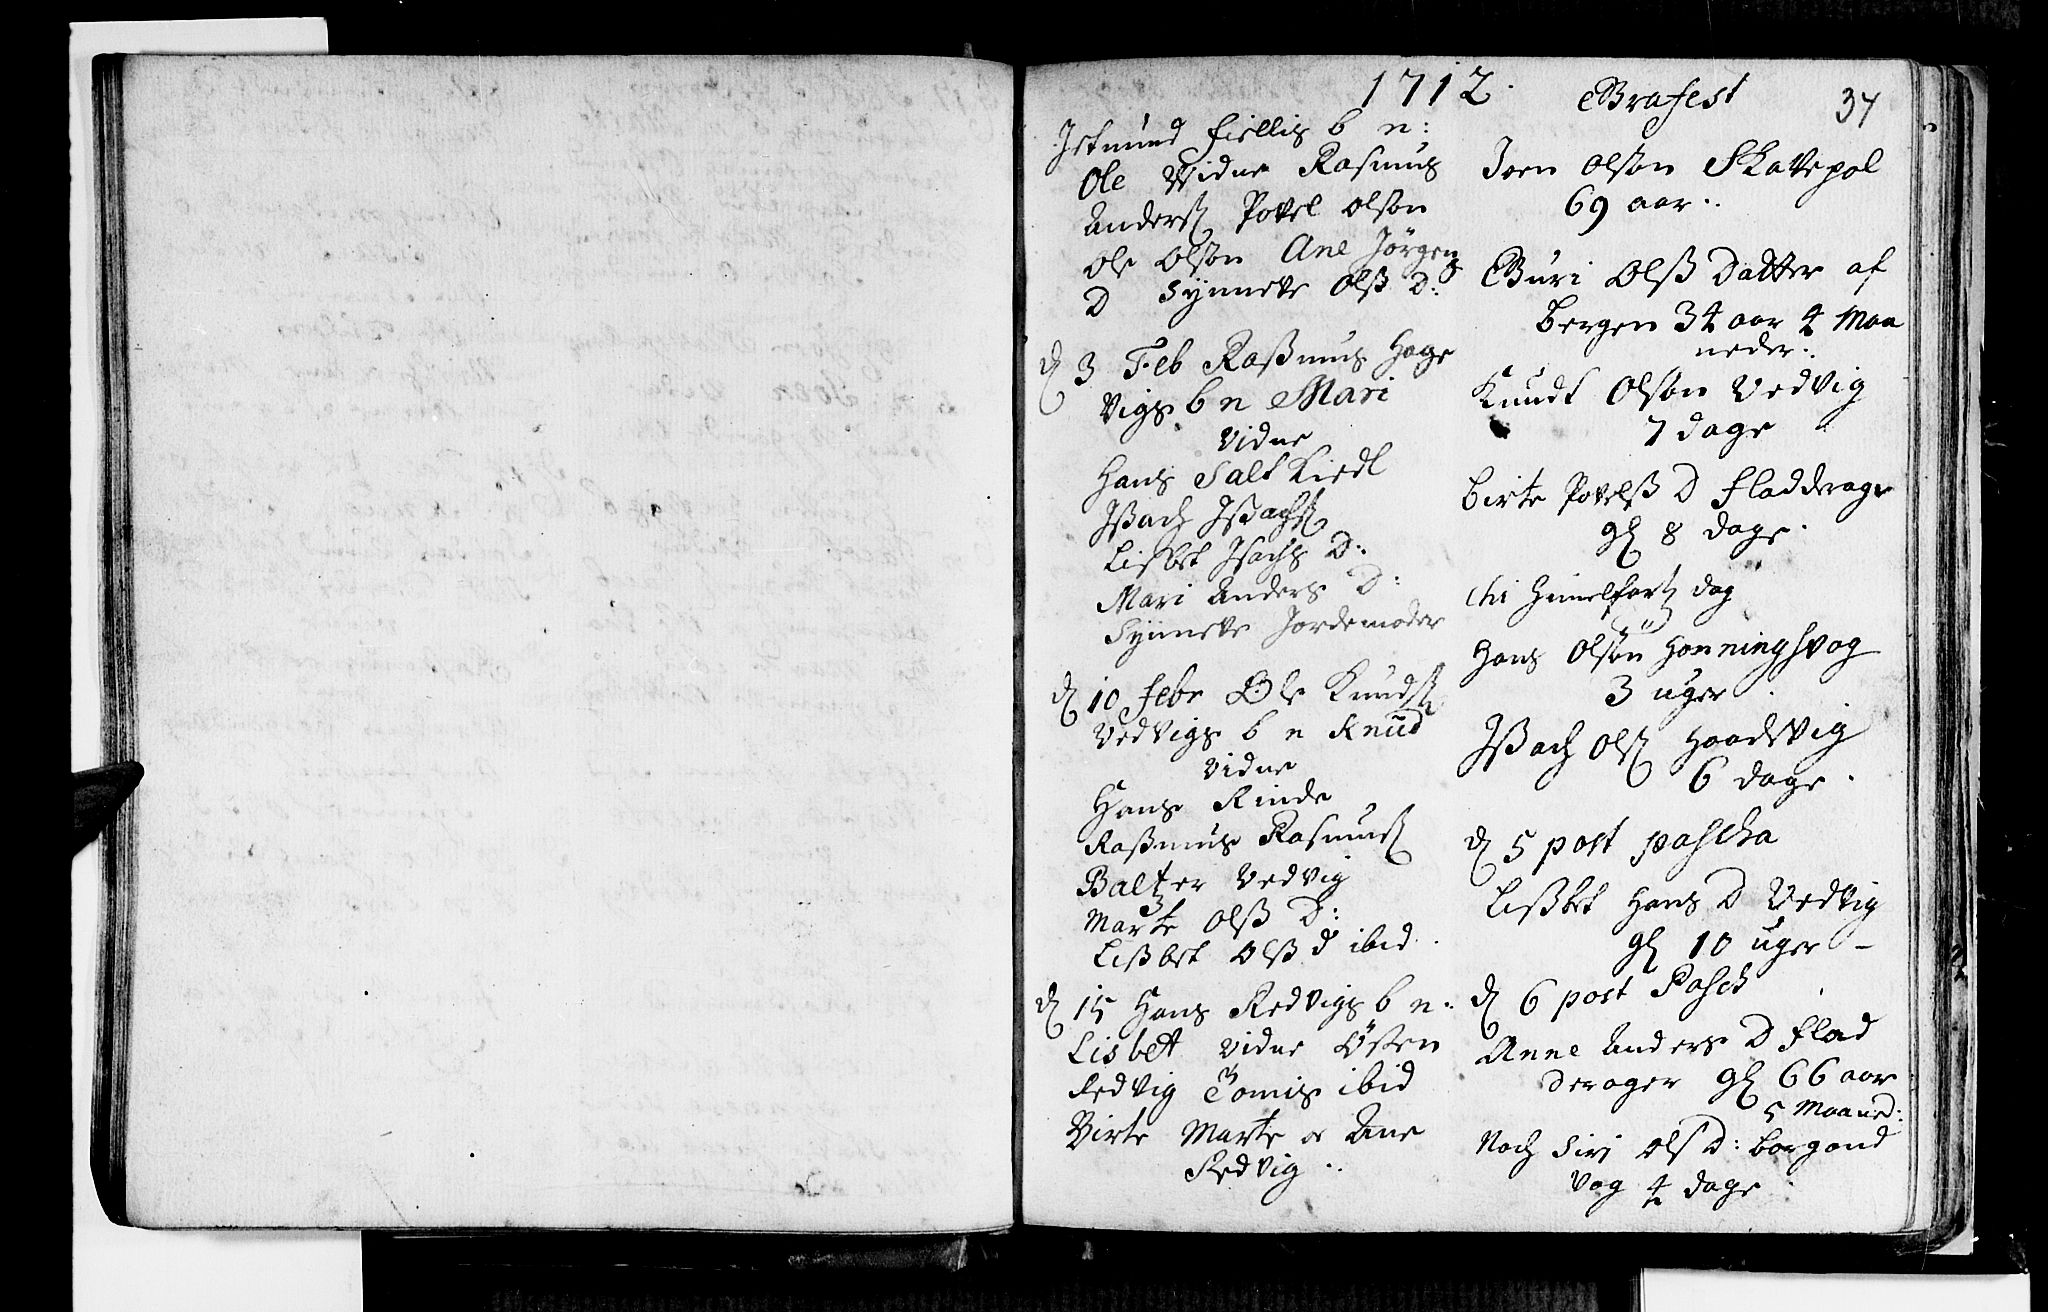 1712.
Jetmund fiellis b n:
Ole Vidne Rasmus
Anders Povel Olson
Ole Olson Ane Jörgens
D Synneve Olß D:
d 3 Feb Raßmus Hage
vigs b n Mari
Vidne
Hans Salt Kield
Jßach Jßachs
Lisbet Jsachs D:
Mari Anders D:
Synneve Jordemoder
d 10 febr Ole Knuds
Vedvigs b n Knud
Vidne
Hans Rinde
Raßmus Rasmus
Baltzer Vedvig
Marte Olß D:
Lißbet Olß d ibid.
d 15 Hans Redvigs b n:
Lisbet vidne Østen
Redvig Tomis ibid
Birte Marte oc Ane
Redvig ..
Grafest
37
Joen Olson Skavepol
69 aar..
Guri Olß Datter af
Bergen 34 aar 4 Maa
neder:.
Knudt Olson Vedvig
7 dage
Birte Povelß D Fladderage
gl 8 dage.
Chi Himelfartz dag
Hans Olsön Honningsvog
3 uger .
Jßach Ols Haadsvig
6 dage.
d 5 post pascha
Lißbet Hans D Vedvig
gl 10 uger –
d 6 post Pasch
Anne Anders D Flad
derager gl 66 aar
5 Maaned:
Noch Siri Ols D: borgand
vog 4 dage